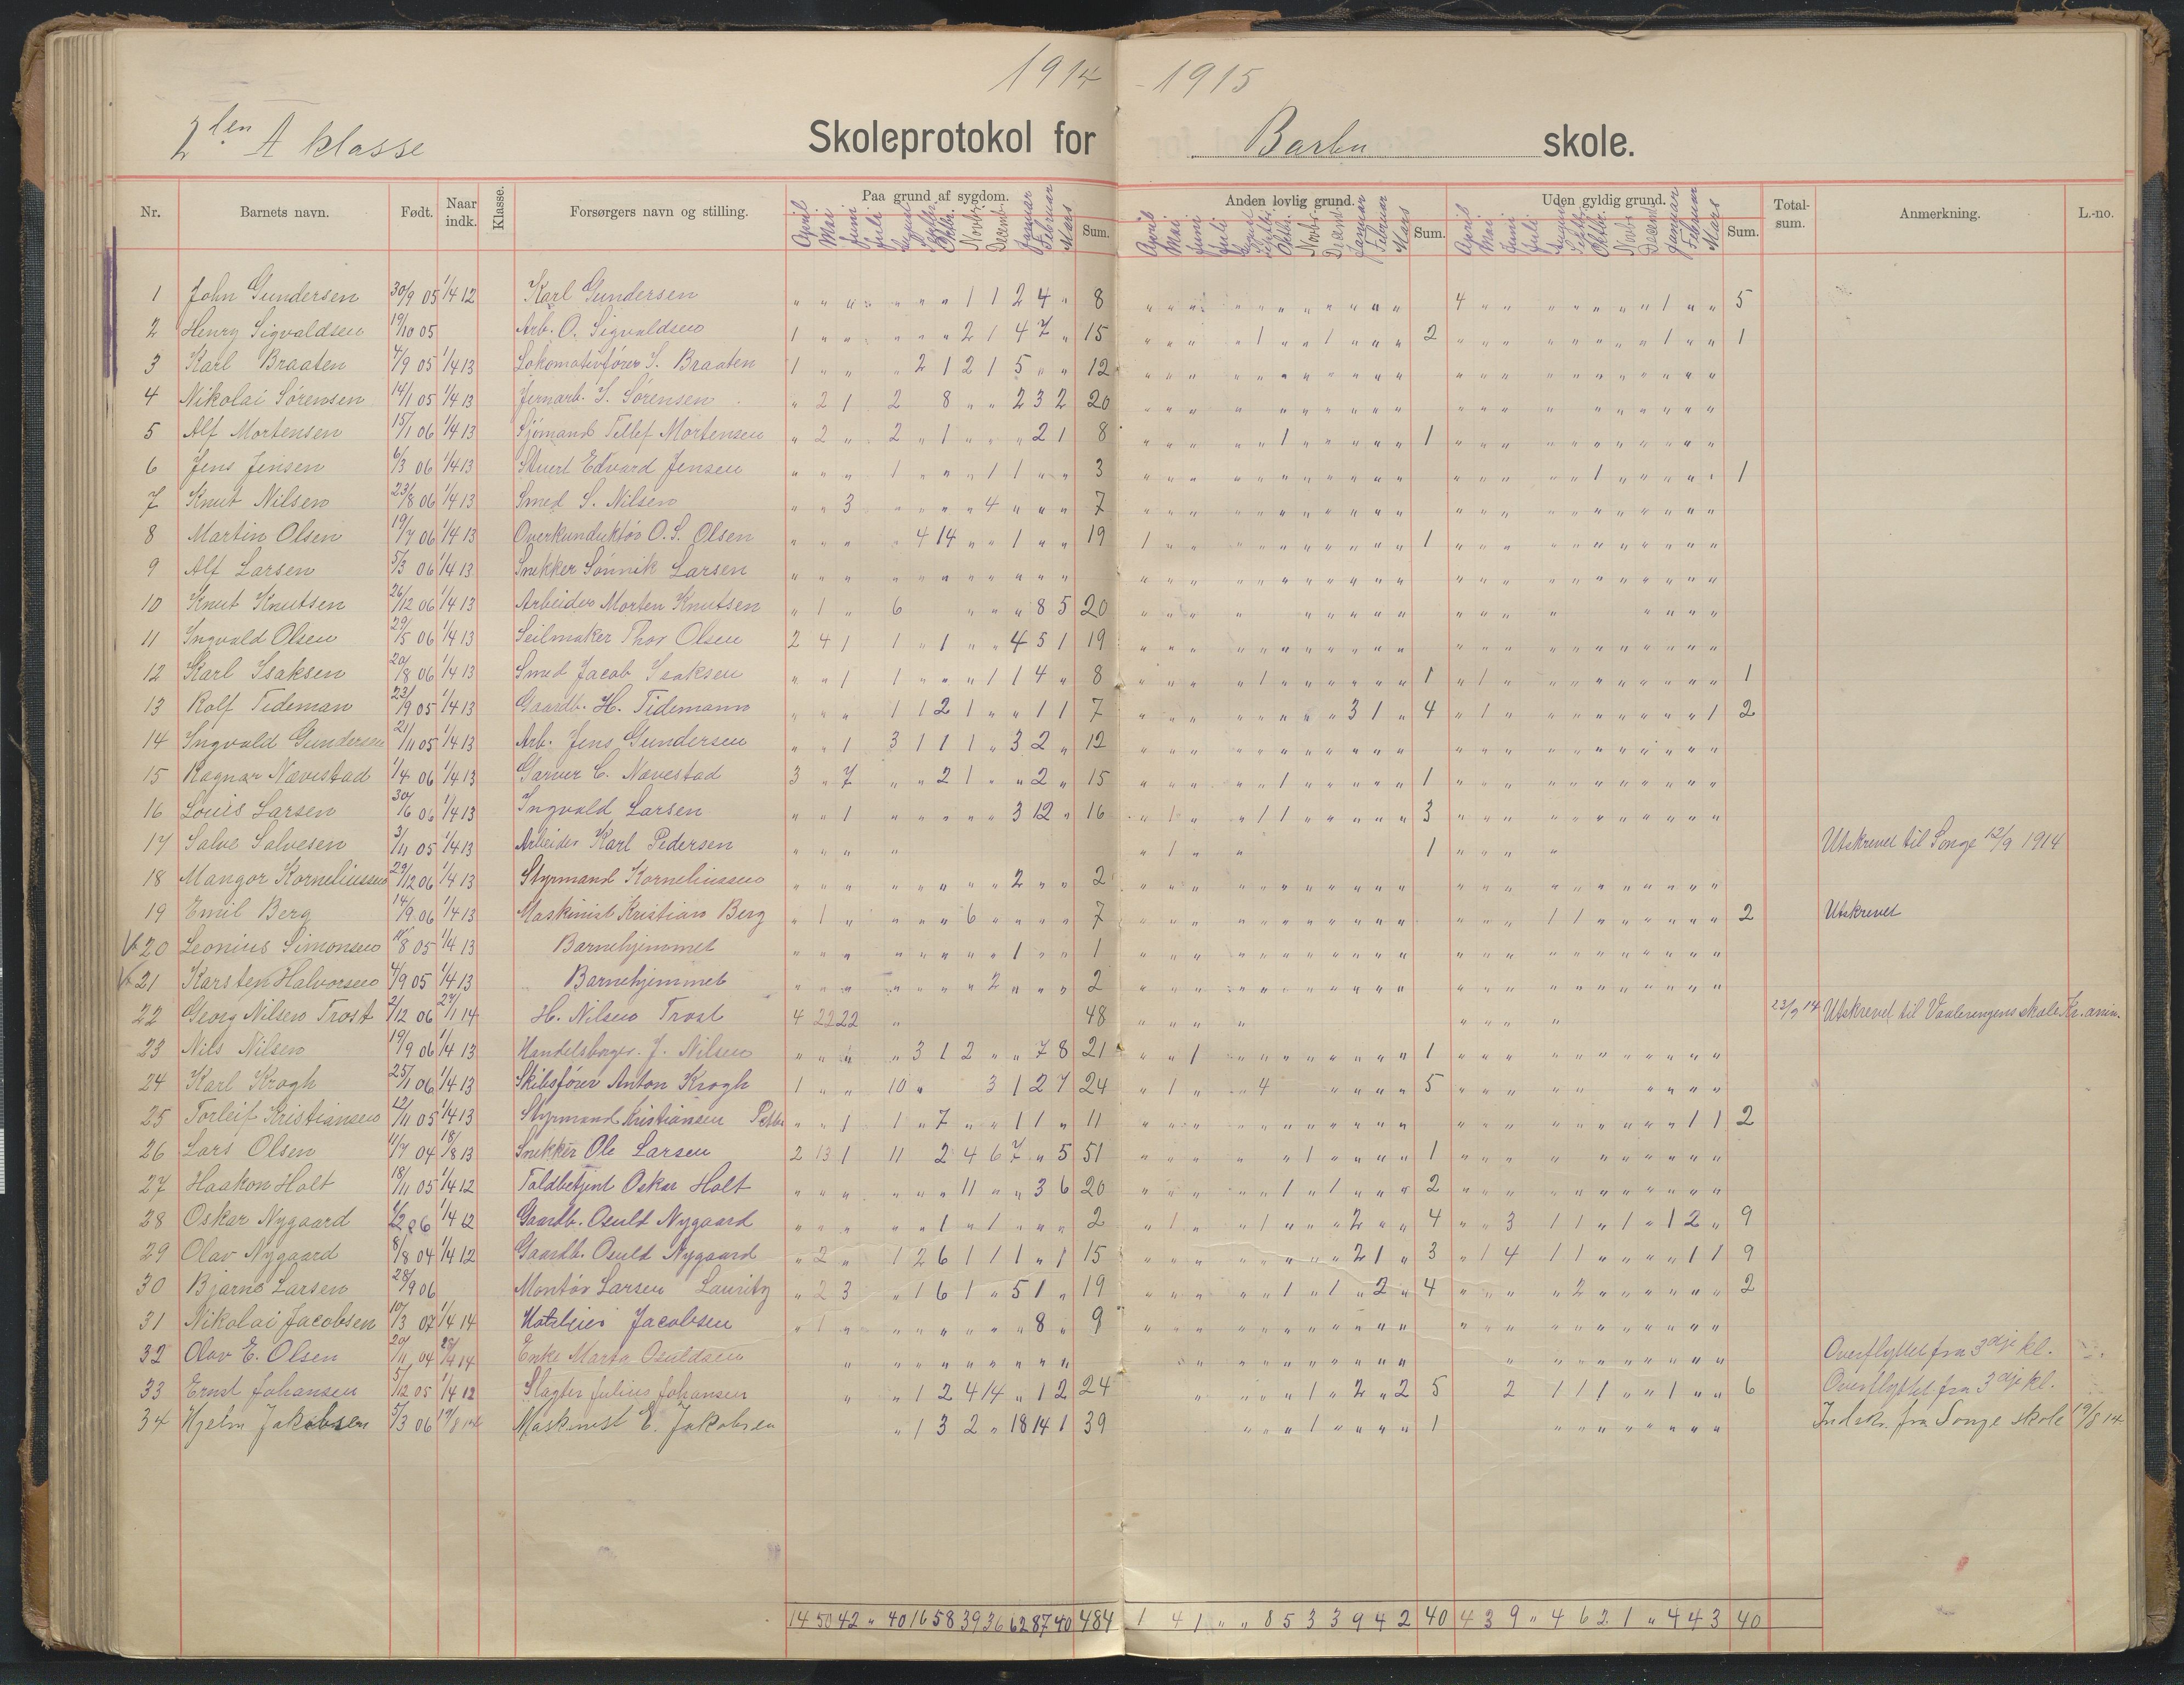 1914 - 1915
2den A klasse Skoleprotokol for Barbu skole.
Nr. Barnets navn. Født. Naar indk. Klasse. Forsørgers navn og stilling. Paa grund af sygdom. Sum. Anden lovlig grund. Sum. Uden gyldig grund. Sum. Total-sum. Anmerkning. L.-no.
April Mai Juni Juli August Septbr. Oktbr. Novbr. Decemb. Januar Februar Mars April Mai Juni Juli August Septbr. Oktbr. Novbr. Decemb. Januar Februar Mars April Mai Juni Juli August Septbr. Oktbr. Novbr. Decemb. Januar Februar Mars
1 John Gundersen 30/9 05 1/4 12 Karl Gundersen " " " " " " 1 1 2 4 " 8 4 " " " " " " " 1 " " 5
2 Henry Sigvaldsen 19/10 05 Arb. O. Sigvaldsen 1 " " " " " 2 1 4 7 " 15 " " " " 1 " " 1 " " " 2 1 " " 1
3 Karl Braaten 4/9 05 1/4 13 Lokomotivfører S. Braaten 1 " " " 2 1 2 1 5 " " 12
4 Nikolai Sørensen 14/1 05 1/4 13 Jernarb. S. Sørensen " 2 1 2 8 " " 2 3 2 20
5 Alf Mortensen 15/1 06 1/4 13 Sjømand Tellef Mortensen " 2 " 2 " 1 " " " 2 1 8 1 1
6 Jens Jensen 6/3 06 1/4 13 Stuert Edvard Jensen " " " 1 " " " 1 1 " " 3 1 1
7 Knut Nilsen 23/8 06 1/4 13 Smed S. Nilsen " " 3 " " " " 4 " " " 7
8 Martin Olsen 19/7 06 1/4 13 Overkunduktør O. S. Olsen " " " " 4 14 " " 1 " " 19 1 1
9 Alf Larsen 5/3 06 1/4 13 Snekker Sønnik Larsen
10 Knut Knutsen 26/12 06 1/4 13 Arbeider Morten Knutsen " 1 " 6 " " " 8 5 20
11 Ingvald Olsen 29/5 06 1/4 13 Seilmaker Thor Olsen 2 4 1 1 " 1 " " 4 5 1 19
12 Karl Isaksen 20/8 06 1/4 13 Smed Jacob Isaksen " " 1 1 " " " 1 1 4 " 8 1 1 " 1 " 1
13 Rolf Tideman 23/9 05 1/4 13 Gaardb. H. Tidemann " " " 1 1 2 1 " " 1 1 7 3 1 " 4 " 1 " 1 2
14 Ingvald Gundersen 21/11 05 1/4 13 Arb. Jens Gundersen " " 1 3 1 1 1 " 3 2 " 12
15 Ragnar Nævestad 1/4 06 1/4 13 Garver C. Nævestad 3 " 7 " " 2 1 " " 2 " 15 1 1
16 Louis Larsen 30/6 06 1/4 13 Ingvald Larsen " " 1 " " " " " 3 12 " 16 " 1 " " 1 1 3
17 Salve Salvesen 3/11 05 1/4 13 Arbeider Karl Pedersen " " " " " 1 " " 1 " " " " Utskrevet til Songe 12/9 1914
18 Mangor Korneliussen 29/12 06 1/4 13 Styrmand Korneliussen 2 " " 2
19 Emil Berg 14/9 06 1/4 13 Maskinist Kristian Berg " 1 " " " " 6 " " " " 7 1 1 2 Utskrevet
20 Leonius Simonsen 10/8 05 1/4 13 Barnehjemmet 1 " " 1
21 Karsten Halvorsen 4/9 05 1/4 13 Barnehjemmet 2 " " " 2
22 Georg Nilsen Trost 2/12 06 27/1 14 H. Nilsen Trost 4 22 22 " 48 23/9 14 Utskrevet til Vaalerengens skole Kr.ania.
23 Nils Nilsen 19/9 06 1/4 13 Handelsborger. J. Nilsen " " " " 3 1 2 " " 7 8 21 " " 1 1
24 Karl Krogh 25/1 06 1/4 13 Skibsfører Anton Krogh 1 " " 10 " 3 1 2 7 24 " 1 " 4 5
25 Torleif Kristiansen 12/11 05 1/4 13 Styrmand Kristiansen " " 1 1 " 7 " " 1 1 " 11 1 1 2
26 Lars Olsen 11/7 04 18/8 13 Snekker Ole Larsen 2 13 1 11 2 4 6 7 " 5 51 1 1
27 Haakon Holt 18/11 05 1/4 12 Toldbetjent Oskar Holt " " " " " " 11 " " 3 6 20 1 " 1 2
28 Oskar Nygaard 1/4 12 Gaardb. Osuld Nygaard 1 " 1 " " " 2 " 1 " " 1 " " " 2 " " 4 " " 3 1 1 " 1 " 1 2 " 9
29 Olav Nygaard 8/8 04 1/4 12 Gaardb. Osuld Nygaard " 2 " 1 2 6 1 1 1 " 1 15 2 1 " 3 " 1 4 1 1 " " " " 1 1 9
30 Bjarne Larsen 28/9 06 Montør Larsen Lauritz " 2 3 " 1 6 1 " 5 1 " 19 1 " 1 " 2 " 4 2 2
31 Nikolai Jacobsen 10/3 07 1/4 14 Jacobsen " 1 " " " " " " " 8 " 9
32 Olav E. Olsen 20/11 04 14 Enke Marta Osuldsen Overflyttet fra 3dje kl.
33 Ernst Johansen 5/12 05 1/4 12 Slagter Julius Johansen " " 1 2 4 14 " 1 2 24 1 " 2 " 2 5 2 1 1 1 " " 1 " " 6 Overflyttet fra 3dje kl.
34 Hjelm Jakobsen 5/3 06 19/8 14 Maskinist E. Jakobsen " 1 3 2 " 18 14 1 39 1 1 Indskr. fra Songe skole 19/8 14
14 50 42 " 40 16 58 39 36 62 87 40 484 1 4 1 " " 8 5 3 3 9 4 2 40 4 3 9 " 4 6 2 1 " 4 4 3 40